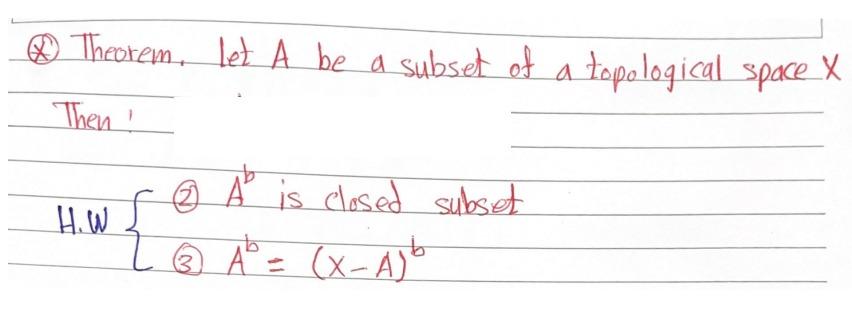 ⊗ Theorem. let A be a subset of a topological space X
Then:
② Aᵇ is closed subset
H.W {
③ Aᵇ = (X-A)ᵇ